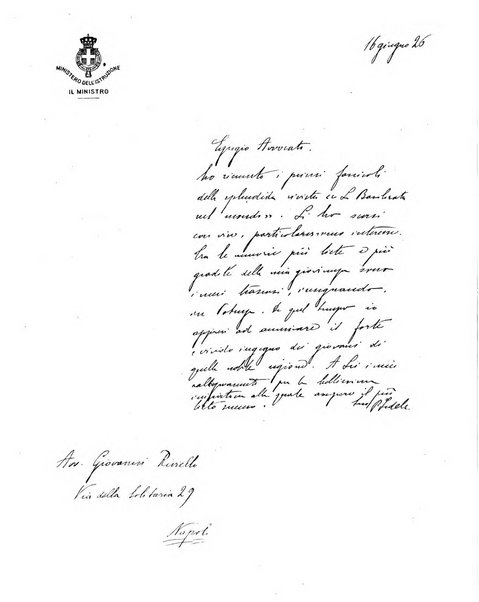 16 giugno 26
MINISTERO DELL'ISTRUZIONE
IL MINISTRO
Egregio Avvocato,
ho ricevuto i primi fascicoli
della splendida rivista "La Basilicata
nel mondo". Li ho scorsi
con vivo, particolarissimo interesse.
Tra le memorie più liete e più
gradite della mia giovinezza sono
i mesi trascorsi, insegnando,
in Potenza. In quel tempo io
appresi ad ammirare il forte
e vivido ingegno dei giovani di
quella nobile regione. A Lei i miei
rallegramenti per la bellissima
iniziativa alla quale auguro il più
lieto successo.
P. Fedele
Avv. Giovanni Riviello
Via della Solitaria 29
Napoli